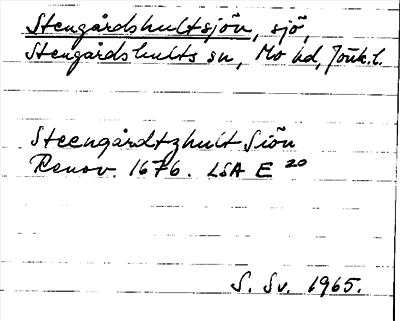 Stengårdshultsjön, sjö,
Stengårdshults sn, Mo hd, Jönk.l.
Steengårdtzhult Siön
Renov. 1676. LSA E 20
S. Sv. 1965.